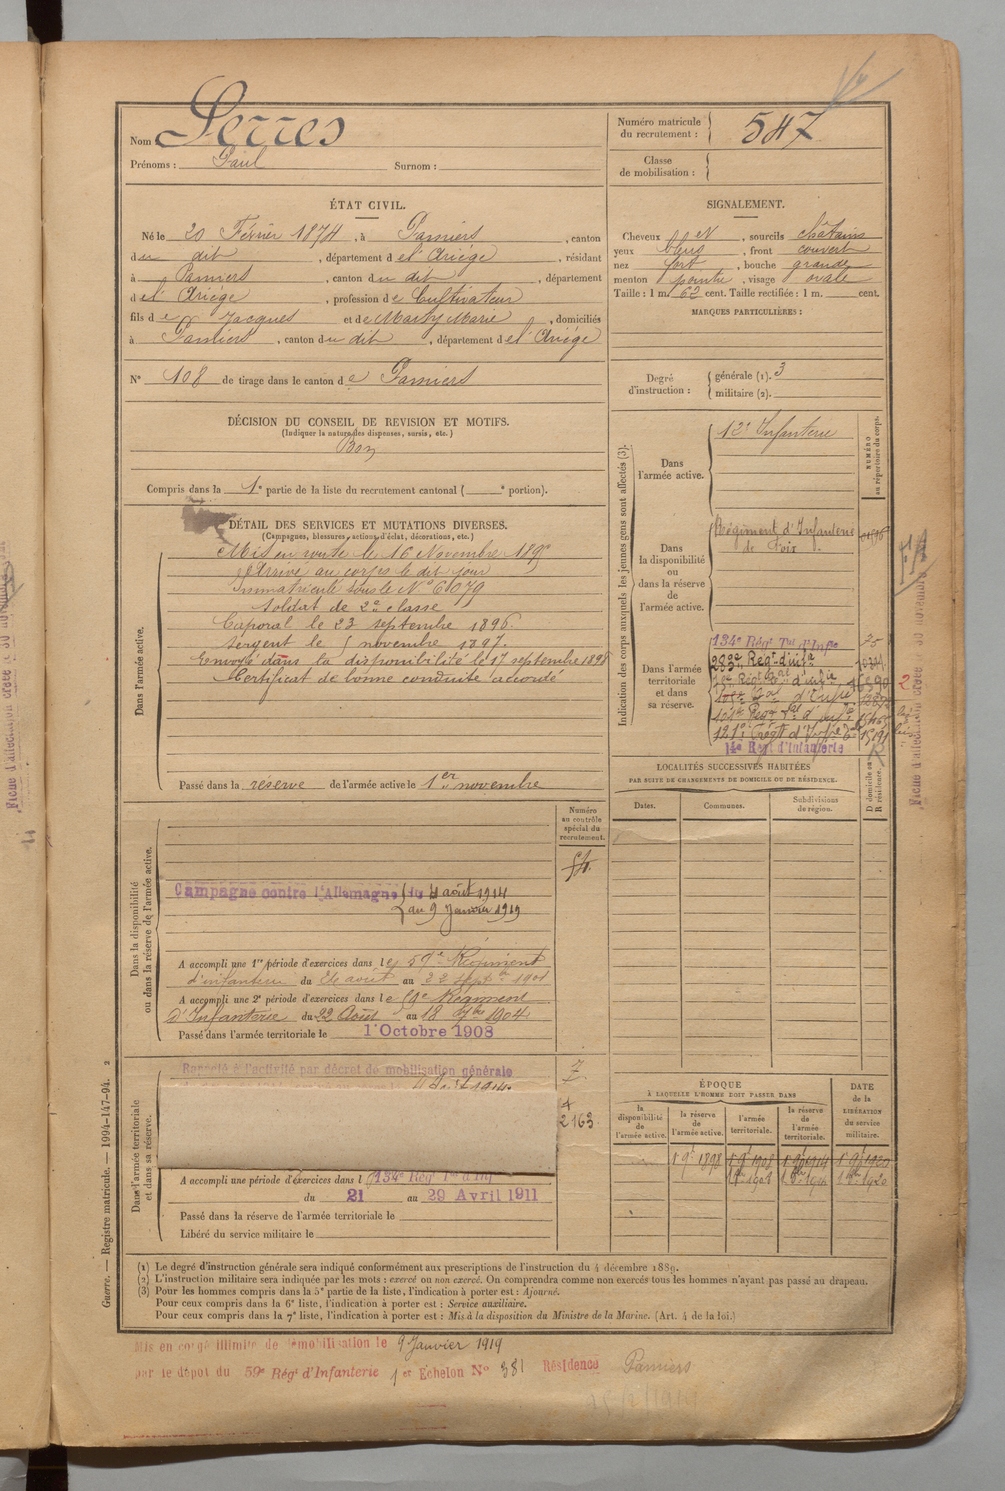 Nom Serres
Prénoms : Paul Surnom :
Numéro matricule du recrutement : 547
Classe de mobilisation :
ÉTAT CIVIL.
Né le 20 Février 1874, à Pamiers, canton
du dit, département de l'Ariège, résidant
à Pamiers, canton du dit, département
de l'Ariège, profession de Cultivateur
fils de Jacques et de Marty Marie, domiciliés
à Pamiers, canton du dit, département de l'Ariège
N° 108 de tirage dans le canton de Pamiers
SIGNALEMENT.
Cheveux, sourcils châtains
yeux bleus, front couvert
nez fort, bouche grande
menton pointu, visage ovale
Taille : 1 m. 62 cent. Taille rectifiée : 1 m. cent.
MARQUES PARTICULIÈRES :
Degré d'instruction : générale (1). 3
militaire (2).
DÉCISION DU CONSEIL DE REVISION ET MOTIFS.
(Indiquer la nature des dispenses, sursis, etc.)
Bon
Compris dans la 1e partie de la liste du recrutement cantonal ( e portion).
DÉTAIL DES SERVICES ET MUTATIONS DIVERSES.
(Campagnes, blessures, actions d'éclat, décorations, etc.)
Dans l'armée active.
Mis en route le 16 Novembre 1895
Arrivé au corps le dit jour
Immatriculé sous le N° 6079
Soldat de 2e classe
Caporal le 23 septembre 1896
Sergent le novembre 1897.
Envoyé dans la disponibilité le 17 septembre 1898
Certificat de bonne conduite accordé
Passé dans la réserve de l'armée active le 1er novembre
Indication des corps auxquels les jeunes gens sont affectés (3).
NUMÉRO au répertoire du corps.
Dans l'armée active.
12e Infanterie
Dans la disponibilité ou dans la réserve de l'armée active.
Régiment d'Infanterie
de Foix
Dans l'armée territoriale et dans sa réserve.
134e Régt Tal d'Infie
283e Regt d'infie
14e Régt d'Infanterie
LOCALITÉS SUCCESSIVES HABITÉES
PAR SUITE DE CHANGEMENTS DE DOMICILE OU DE RÉSIDENCE.
Dates. Communes. Subdivisions de région. D domicile ou R résidence.
Numéro au contrôle spécial du recrutement.
Dans la disponibilité ou dans la réserve de l'armée active.
Campagne contre l'Allemagne du 4 août 1914
au 9 Janvier 1919
A accompli une 1re période d'exercices dans le 59e Régiment
d'infanterie du août au 22 1901
A accompli une 2e période d'exercices dans le 59e Régiment
d'Infanterie du 22 Août au 18 7bre 1904
Passé dans l'armée territoriale le 1 Octobre 1908
Dans l'armée territoriale et dans sa réserve.
Rappelé à l'activité par décret de mobilisation générale
2163
A accompli une période d'exercices dans l 134e Régt Tal d'Inf
du 21 au 29 Avril 1911
Passé dans la réserve de l'armée territoriale le
Libéré du service militaire le
ÉPOQUE
À LAQUELLE L'HOMME DOIT PASSER DANS
la disponibilité de l'armée active. la réserve de l'armée active. l'armée territoriale. la réserve de l'armée territoriale.
DATE de la LIBÉRATION du service militaire.
(1) Le degré d'instruction générale sera indiqué conformément aux prescriptions de l'instruction du 4 décembre 1889.
(2) L'instruction militaire sera indiquée par les mots : exercé ou non exercé. On comprendra comme non exercés tous les hommes n'ayant pas passé au drapeau.
(3) Pour les hommes compris dans la 5e partie de la liste, l'indication à porter est : Ajourné.
Pour ceux compris dans la 6e liste, l'indication à porter est : Service auxiliaire.
Pour ceux compris dans la 7e liste, l'indication à porter est : Mis à la disposition du Ministre de la Marine. (Art. 4 de la loi.)
Guerre. — Registre matricule. — 1994-147-94. 2
Mis en congé illimité de démobilisation le 9 Janvier 1919
par le dépôt du 59e Régt d'Infanterie 1er Echelon N° 381 Résidence Pamiers